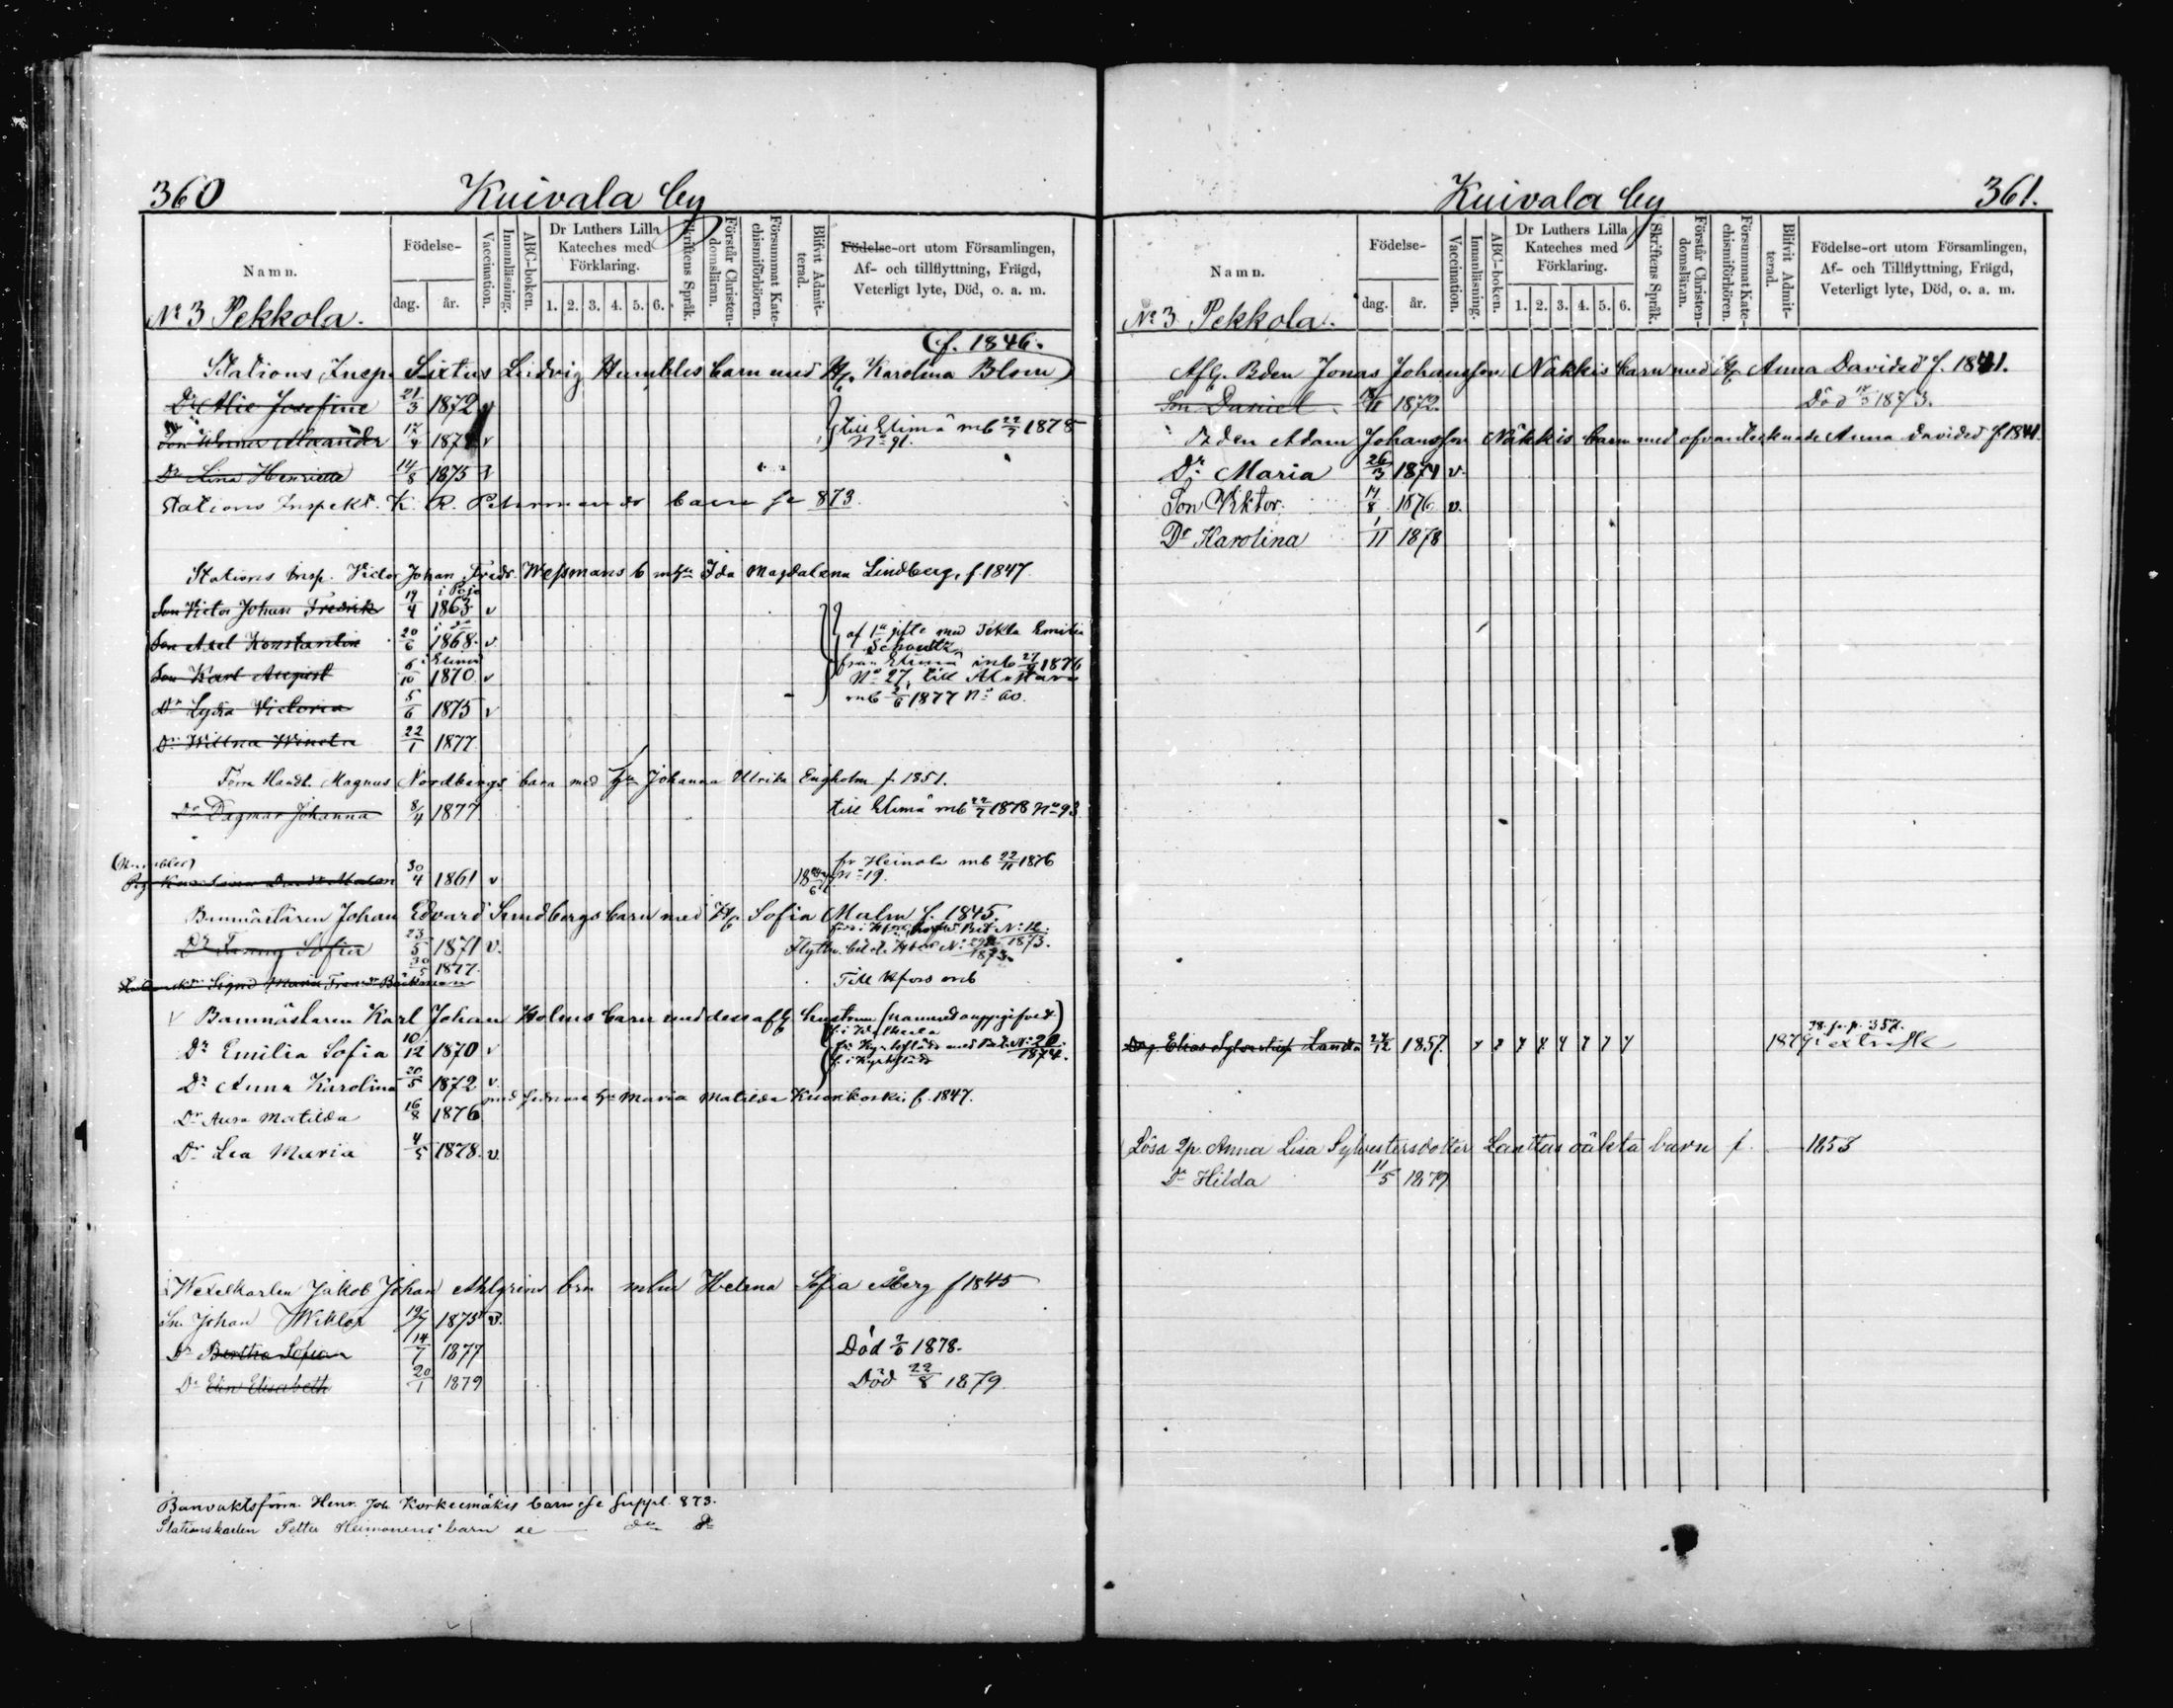 360 Kuivala by
Namn.
Födelse-
dag. år.
Vaccination.
Innanläsning.
ABC-boken.
Dr Luthers Lilla Kateches med Förklaring.
1. 2. 3. 4. 5. 6.
Skriftens Språk.
Förstår Christendomsläran.
Försummat Katechismiförhören.
Blifvit Admitterad.
Födelse-ort utom Församlingen,
Af- och tillflyttning, Frägd,
Veterligt lyte, Död, o. a. m.
No 3 Pekkola.
f. 1846.
Stations Insp. Sixtus Ludvig Humbles barn med H. Karolina Blom
Dr Josefine 21/3 1872 v
till Elimä mb 22/7 1878
No 91.
v
Dr Lina Henriette 14/8 1875 v
Stations Inspekt. K. R. barn se 873.
Stations Insp. Victor Johan Fredr. Wessmans b m hu Ida Magdalena Lindberg, f. 1847.
i Pojo
Son Victor Johan Fredrik 19/4 1863 v
Son Axel Konstantin 20/6 1868. v
af 1a gifte med Tekla Emilia
i Elimä
Son Karl August 6/10 1870 v
från Elimä inb 27/ 1876
No 27, till
Dr Lydia Victoria 5/6 1875 v
mb 5/6 1877 No 60.
Dr 22/1 1877.
Magnus Nordbergs barn med Hu Johanna Ulrika Engholm f. 1851.
Dr Dagmar Johanna 8/4 1877 till Elimä mb 22/7 1878 No 93
fr Heinola mb 22/11 1876
30/4 1861 v No 19.
Banmästaren Johan Edvard Sundbergs barn med H. Sofia Malm f. 1845.
Dr Fanny Sofia 23/5 1871 v.
30/5 1877.
Till Hfors mb
v Banmästaren Karl Johan Holms barn med dess afl hustrun
Dr Emilia Sofia 10/12 1870 v
Dr Anna Karolina 20/5 1872 v.
med Hu Maria Matilda Kuorikoski f. 1847.
Dr Matilda 16/8 1876
Dr Lea Maria 4/5 1878. v.
Wexelkarlen Jakob Johan Ahlgrins brn mhu Helena Sofia Åberg f 1845
Sn Johan Wiktor 19/7 1875 v.
Dr Bertha Sofia 14/7 1877 Död 1878.
Dr Elin Elisabeth 20/1 1879 Död 22/8 1879.
Banvaktsförm. Henr. Joh. Korkeemäkis barn se Suppl. 873.
Stationskarlen Petter Heimonens barn se do do
Kuivala by 361.
Namn.
Födelse-
dag. år.
Vaccination.
Innanläsning.
ABC-boken.
Dr Luthers Lilla Kateches med Förklaring.
1. 2. 3. 4. 5. 6.
Skriftens Språk.
Förstår Christendomsläran.
Försummat Katechismiförhören.
Blifvit Admitterad.
Födelse-ort utom Församlingen,
Af- och Tillflyttning, Frägd,
Veterligt lyte, Död, o. a. m.
No 3 Pekkola.
Afl. Bden Jonas Johansson Näkkis barn med H. Anna Davidsd f. 1841.
Son Daniel 1872. Död 1873.
Bden Adam Johansson Näkkis barn med ofvantecknade Anna Davidsd f. 1841.
Dr Maria 26/3 1874 v.
Son Viktor 14/8 1876 v.
Dr Karolina 1/11 1878
38. fr. p. 357.
Elias 24/12 1857. 1879
Lösa qp. Anna Lisa Sylvestersdotter Lanttas oäkta barn f. 1853
Dr Hilda 11/5 1879